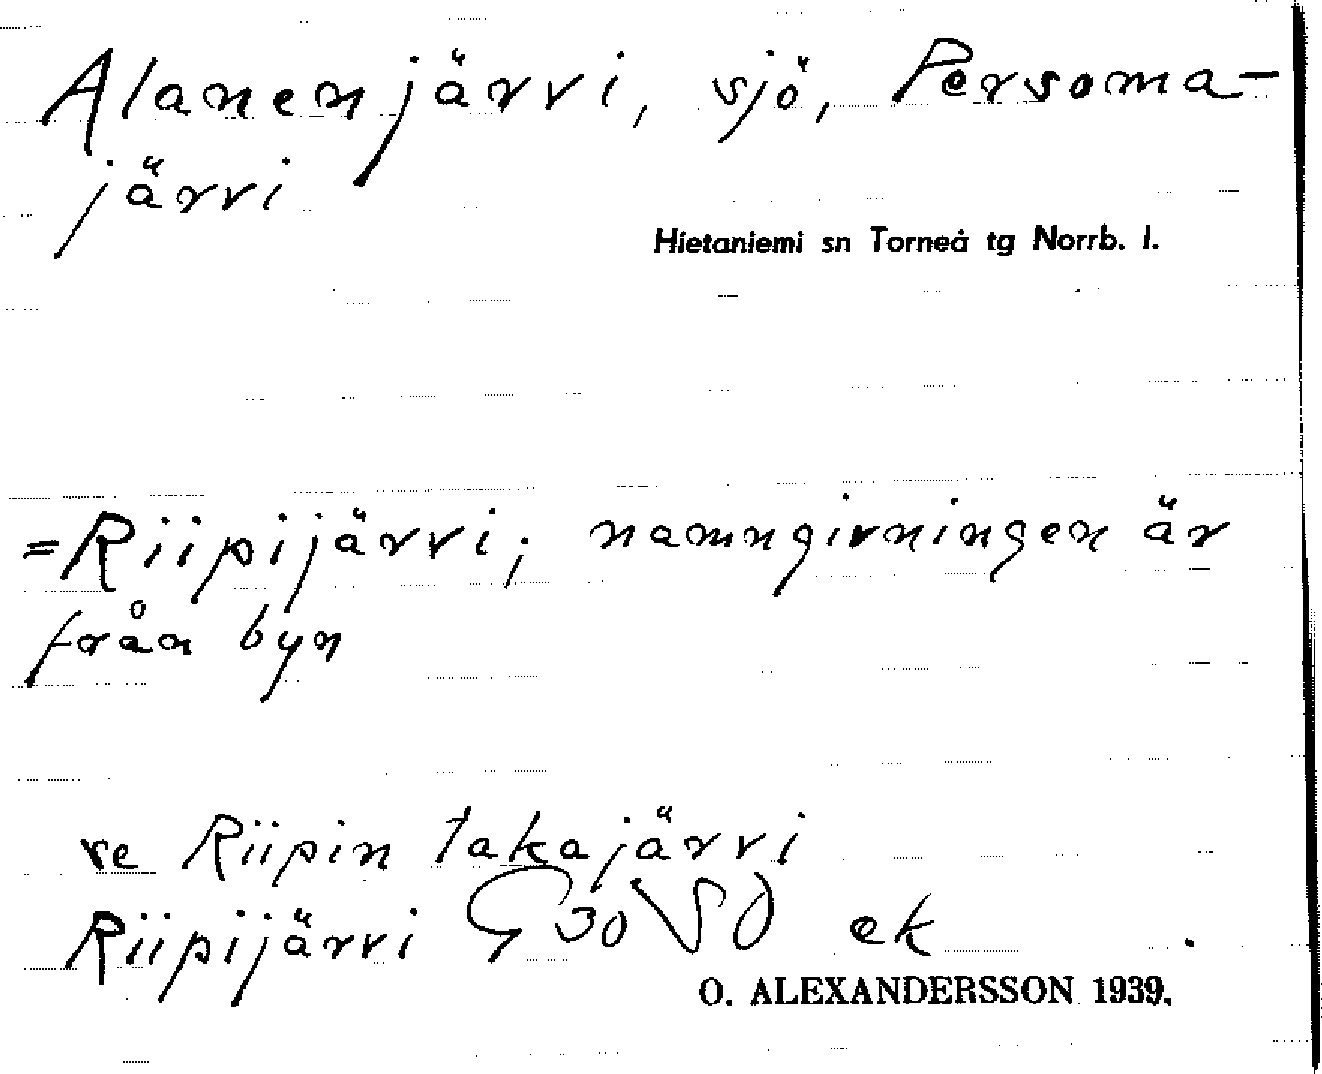 Alanenjärvi, sjö, Persoma-
järvi
Hietaniemi sn Torneå tg Norrb. l.
=Riipijärvi; namngivningen är
från byn
ve Riipin takajärvi
Riipijärvi G 30 V SO ek
O. ALEXANDERSSON 1939.